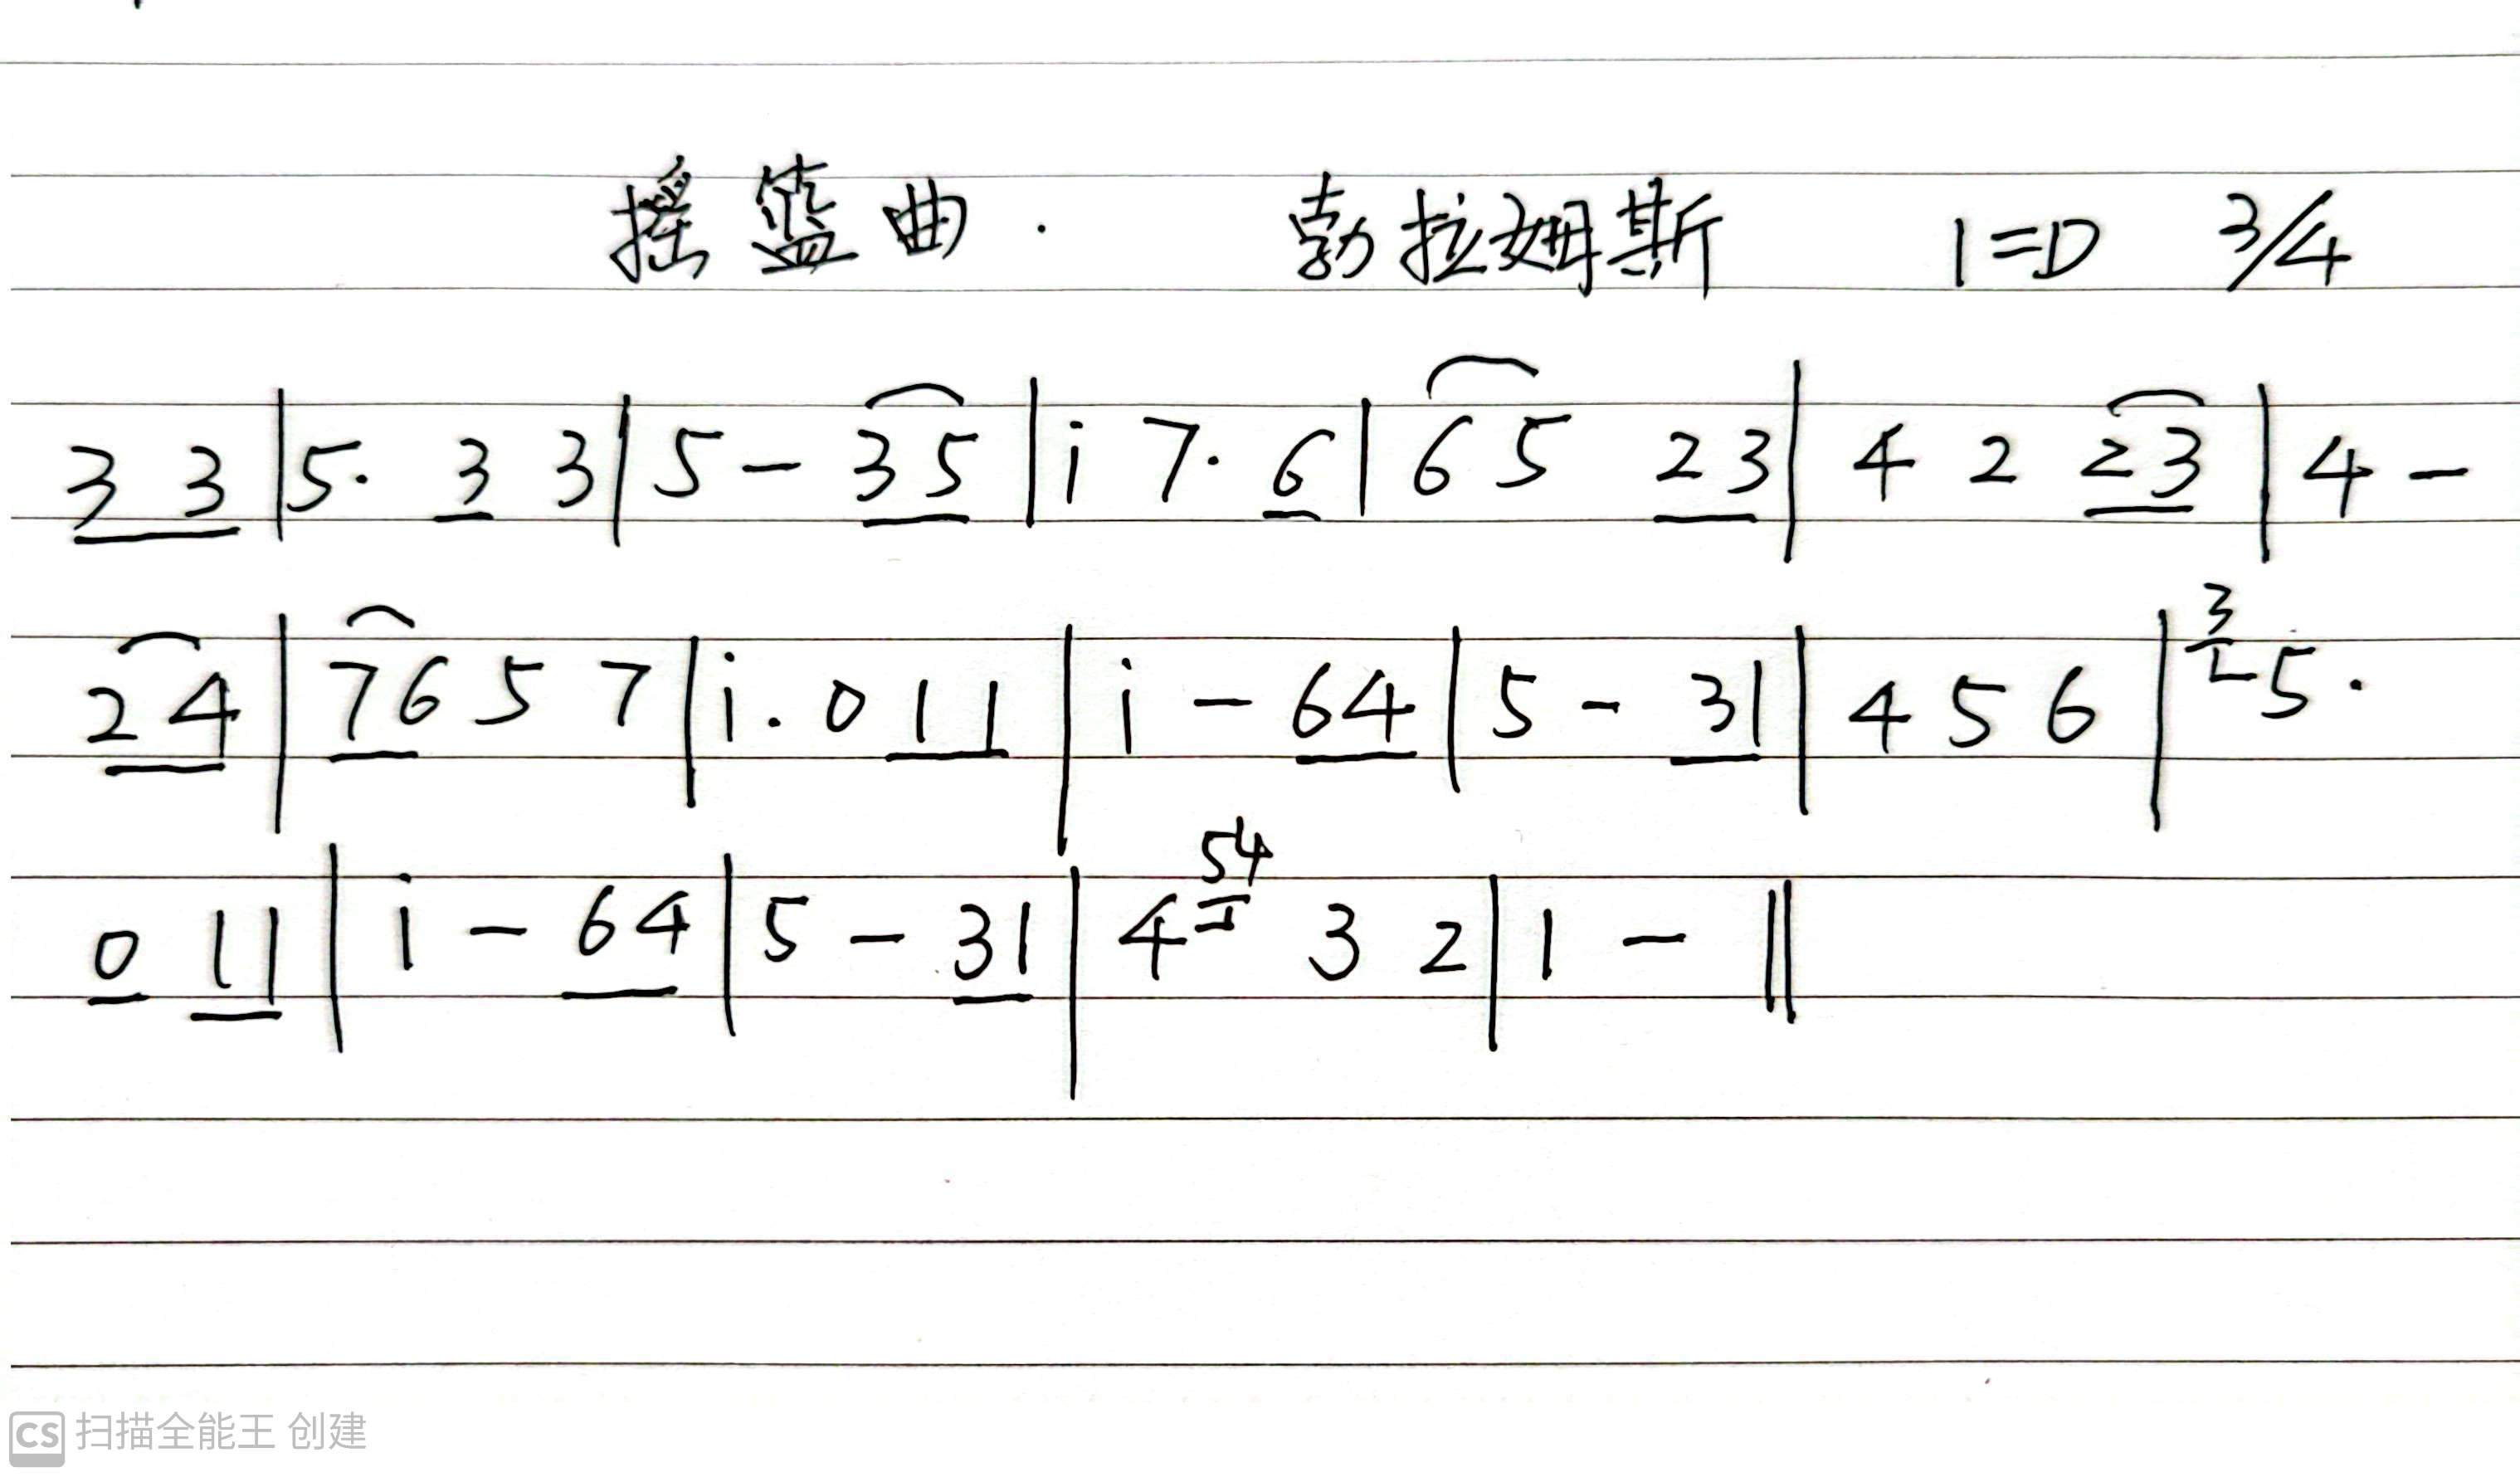 摇篮曲. 勃拉姆斯 1=D 3/4
3 3 | 5. 3 3 | 5 - 3 5 | i 7. 6 | 6 5 2 3 | 4 2 2 3 | 4 -
2 4 | 7 6 5 7 | i. 0 1 1 | i - 6 4 | 5 - 3 1 | 4 5 6 | 3 5.
0 1 1 | i - 6 4 | 5 - 3 1 | 4 54 3 2 | 1 - ||
CS 扫描全能王 创建